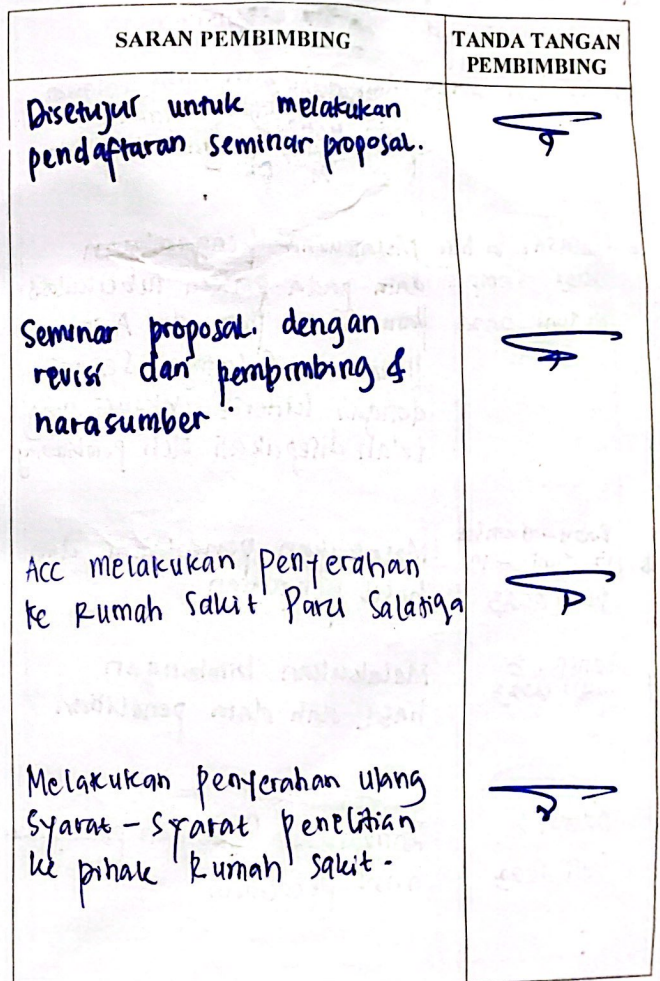 SARAN PEMBIMBING
TANDA TANGAN
PEMBIMBING
Disetujui untuk melakukan
pendaftaran seminar proposal.
Seminar proposal. dengan
revisi dari pembimbing &
narasumber.
Acc melakukan Penyerahan
ke Rumah Sakit Paru Salatiga
Melakukan penyerahan ulang
Syarat - Syarat Penelitian
ke pihak Rumah Sakit.